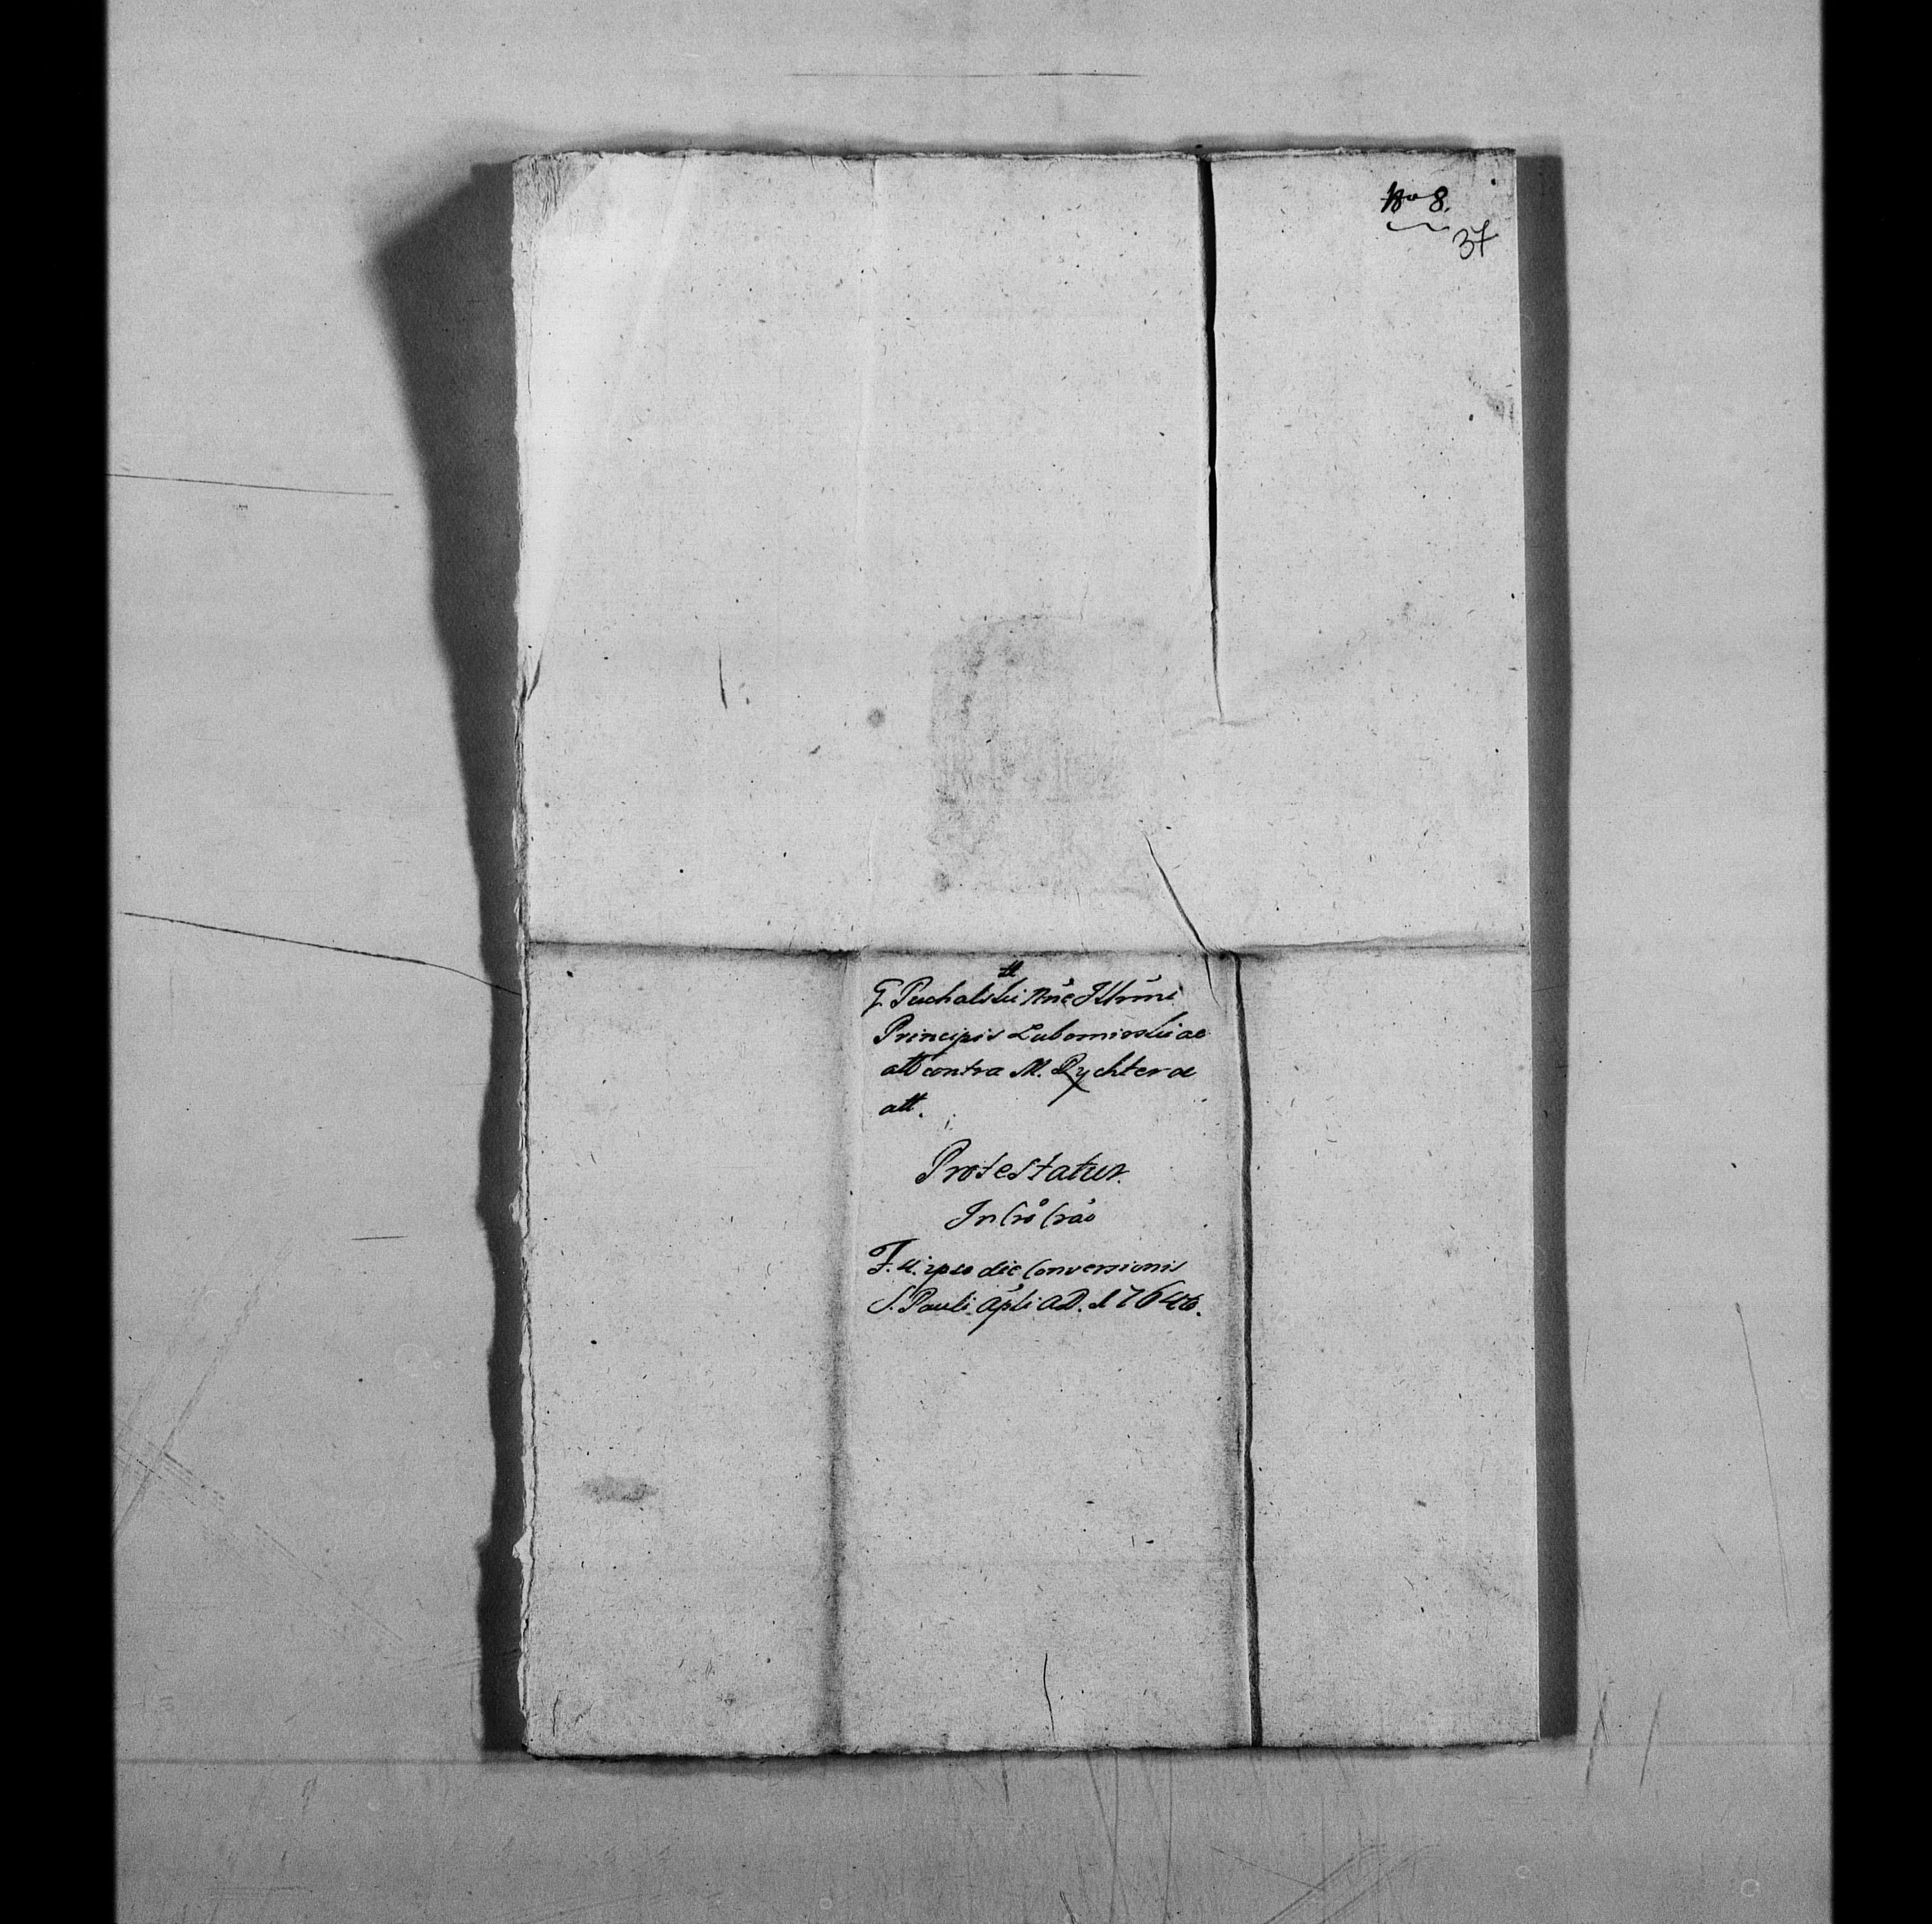 No 8.
37
G. Puchalski Nne Illrmi
Principis Lubomirski ac
att contra M. Rychter ac
att.
Protestatur.
In Cro Crao
F. ipso die Conversionis
S. Pauli Apli AD.